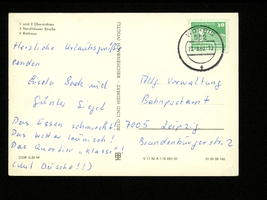 1 und 2 Übersichten
3 Nordhäuser Straße
4 Rathaus
Herzliche Urlaubsgrüße
senden
Gisela Bock und
Günter Siegel
Das Essen schmeckt!
Das Wetter launisch!
Das Quartier „Klasse"!
(mit Dusche!!)
BILD UND HEIMAT REICHENBACH (VOGTL)
10
Allg. Verwaltung
Bahnpostamt
7005 Leipzig
Brandenburgerstr. 2
DDR 0,20 M